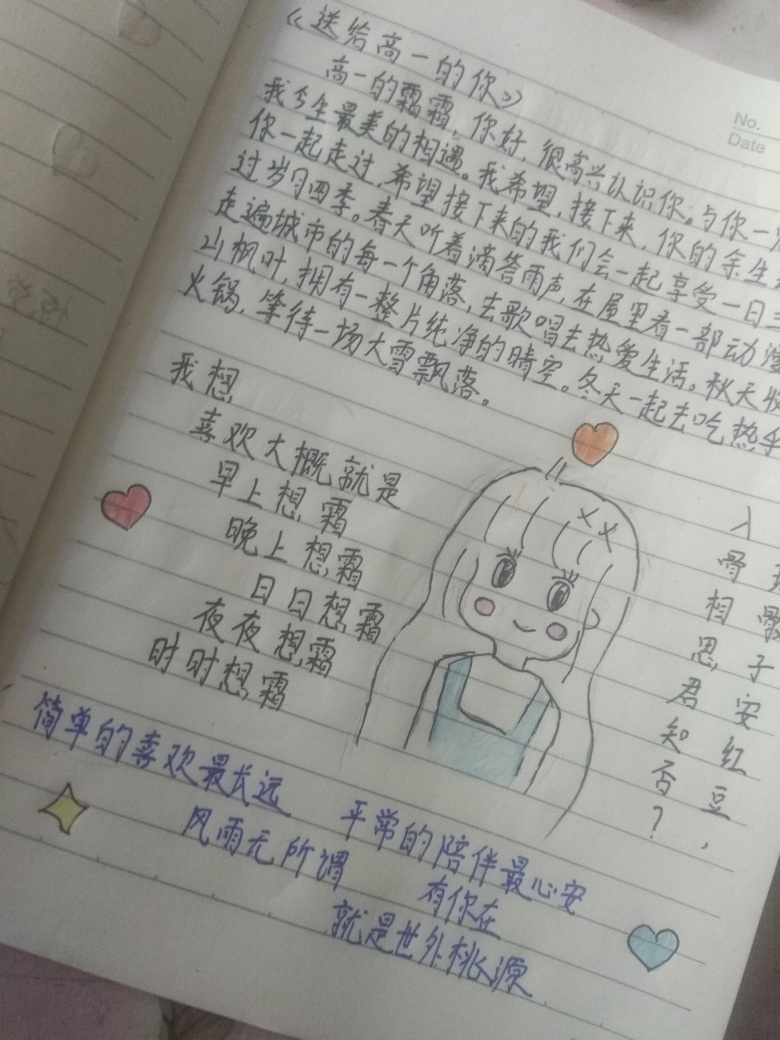 《送给高一的你》
高一的霜霜,你好,很高兴认识你。与你一
我今生最美的相遇。我希望,接下来,你的余生
你一起走过,希望接下来的我们会一起享受一日三
过岁月四季。春天听着滴答雨声,在屋里看一部动漫
走遍城市的每一个角落,去歌唱去热爱生活。秋天
山枫叶,拥有一整片纯净的晴空。冬天一起去吃热乎
火锅,等待一场大雪飘落。
我想
喜欢大概就是
早上想霜
晚上想霜
日日想霜
夜夜想霜
时时想霜
骰子安红豆,
入骨相思君知否?
简单的喜欢最长远
平常的陪伴最心安
风雨无所谓
有你在
就是世外桃源
No.
Date